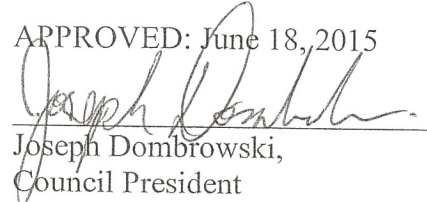 APPROVED: June 18, 2015
Joseph Dombrowski
Joseph Dombrowski,
Council President